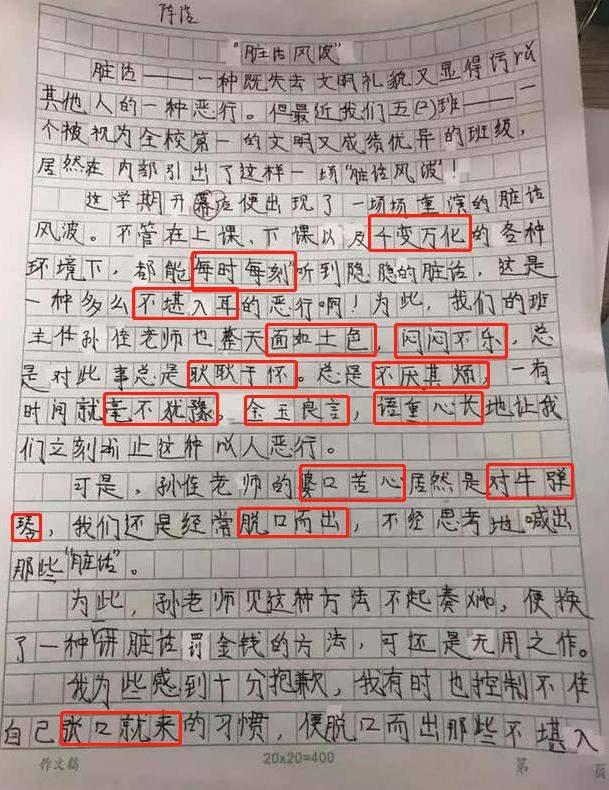 陈浩
"脏话风波"
脏话——一种既失去文明礼貌又显得污rǔ
其他人的一种恶行。但最近我们五(2)班——一
个被视为全校第一的文明又成绩优异的班级,
居然在内部引出了这样一场"脏话风波"!
这学期开幕后便出现了一场场重演的脏话
风波。不管在上课、下课以及千变万化的各种
环境下,都能每时每刻听到隐隐的脏话,这是
一种多么不堪入耳的恶行啊!为此,我们的班
主任孙佳老师也整天面如土色,闷闷不乐,总
是对此事总是耿耿于怀。总是不厌其烦,一有
时间就毫不犹豫,金玉良言,语重心长地让我
们立刻停止这种以人恶行。
可是,孙佳老师的婆口苦心居然是对牛弹
琴,我们还是经常脱口而出,不经思考地喊出
那些"脏话"。
为此,孙老师见这种方法不起奏xiào,便换
了一种讲脏话罚金钱的方法,可还是无用之作。
我为些感到十分抱歉,我有时也控制不住
自己张口就来的习惯,便脱口而出那些不堪入
作文稿 20x20=400 第 页